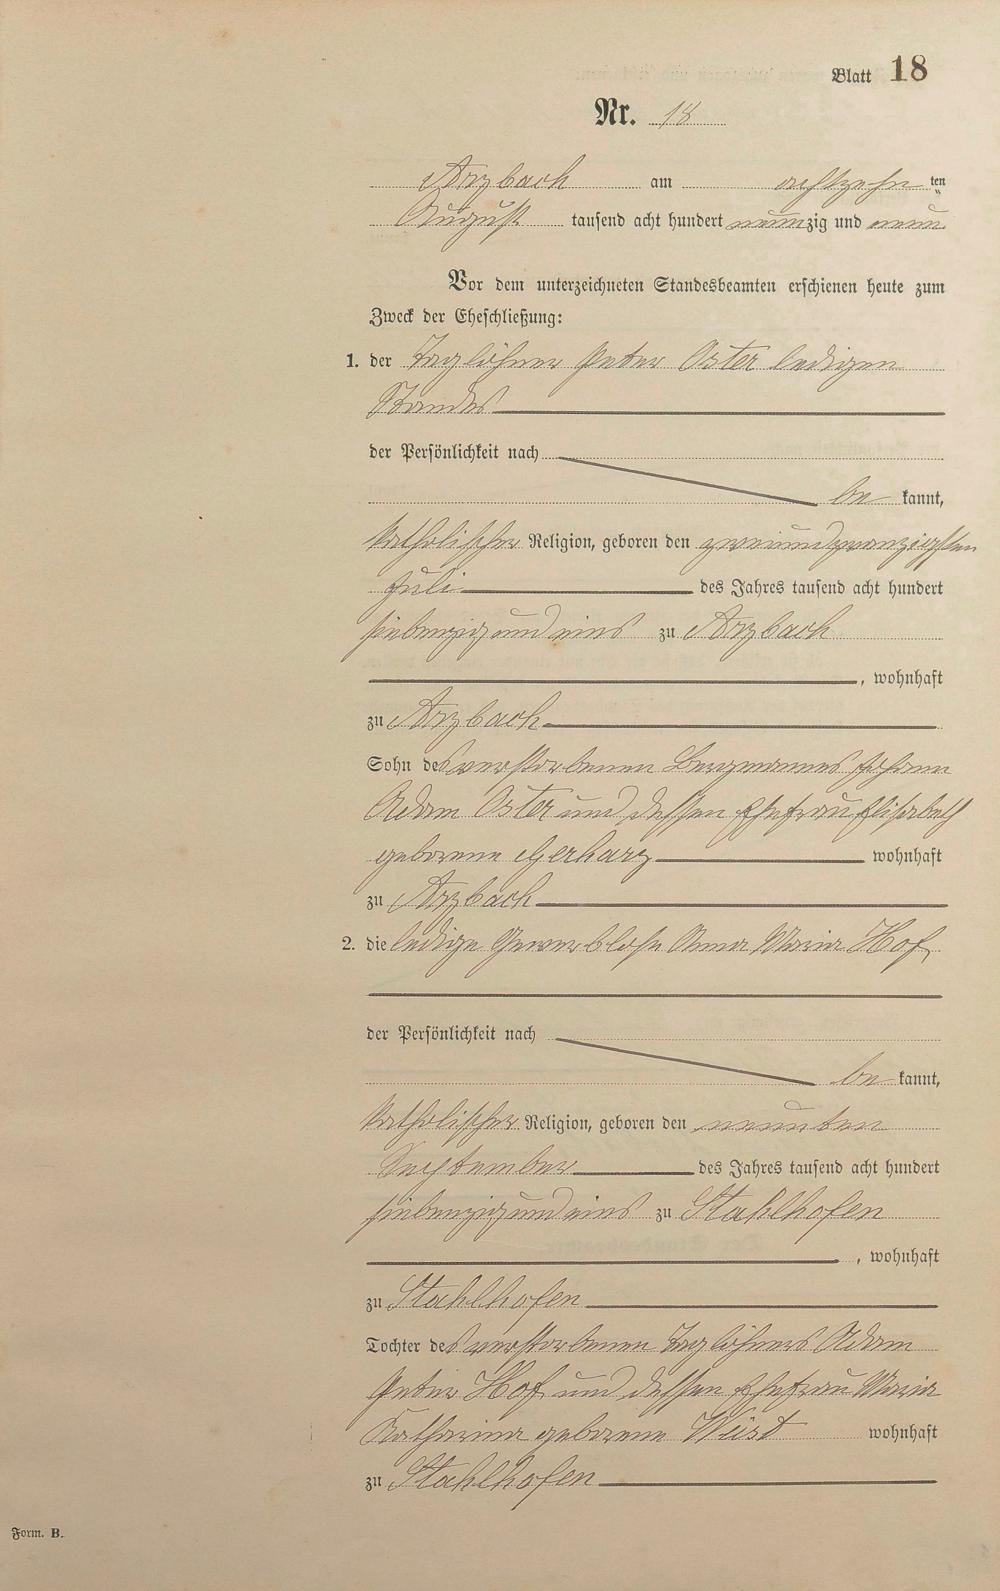 Blatt 18
Nr. 18
Arzbach am achtzehn ten
August tausend acht hundert neunzig und neun
Vor dem unterzeichneten Standesbeamten erschienen heute zum
Zweck der Eheschließung:
1. der Taglöhner Peter Oster ledigen
Standes
der Persönlichkeit nach
be kannt,
katholischer Religion, geboren den zweiundzwanzigsten
Juli des Jahres tausend acht hundert
siebenzig und eins zu Arzbach
, wohnhaft
zu Arzbach
Sohn des verstorbenen Bergmannes Johann
Adam Oster und dessen Ehefrau Elisabeth
geborene Gerharz wohnhaft
zu Arzbach
2. die ledige Gewerblose Anna Maria Hof
der Persönlichkeit nach
be kannt,
katholischer Religion, geboren den neunten
September des Jahres tausend acht hundert
siebenzig und eins zu Stahlhofen
, wohnhaft
zu Stahlhofen
Tochter des verstorbenen Taglöhners Adam
Peter Hof und dessen Ehefrau Maria
Katharina geborene Wüst wohnhaft
zu Stahlhofen
Form. B.